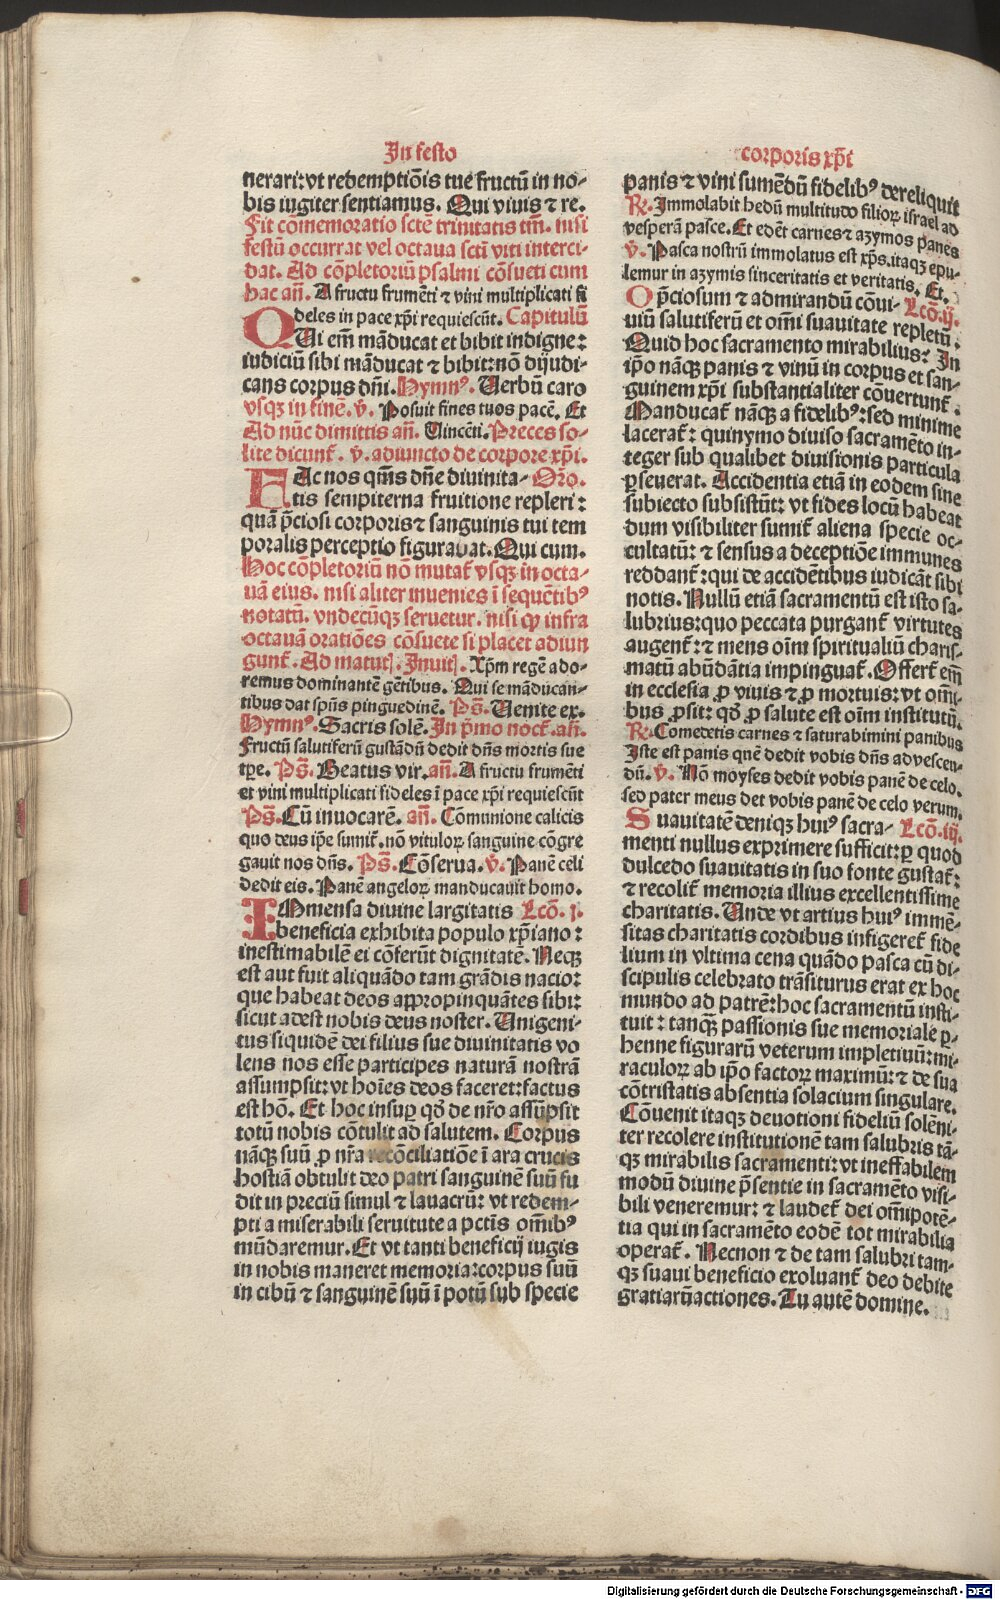 In festo
nerari: vt redemptiōis tue fructū in no-
bis iugiter sentiamus. Qui viuis ⁊ re.
Fit cōmemoratio sctē trinitatis tm̄. nisi
festū occurrat vel octaua scti viti interci-
dat. Ad cōpletoriū psalmi cōsueti cum
hac an̄. A fructu frumēti ⁊ vini multiplicati fi
deles in pace xp̄i requiescūt. Capitulū
QUi em̄ māducat et bibit indigne:
iudiciū sibi māducat ⁊ bibit: nō dijudi-
cans corpus dn̄i. Hymnꝰ. Uerbū caro
vsqꝫ in finē. v̄. Posuit fines tuos pacē. Et
Ad nūc dimittis an̄. Uincēti. Preces so-
lite dicunt᷑. v̄. adiuncto de corpore xp̄i.
FAc nos qm̄s dn̄e diuinita- Oro.
tis sempiterna fruitione repleri:
quā p̄ciosi corporis ⁊ sanguinis tui tem
poralis perceptio figurabat. Qui cum.
Hoc cōpletoriū nō mutat᷑ vsqꝫ in octa-
uā eius. nisi aliter inuenies ī sequētibꝰ
notatū. vndecūqꝫ seruetur. nisi ꝙ infra
octauā oratiōes cōsuete si placet adiun
gunt᷑. Ad matut̄. Inuit̄. Xp̄m regē ado-
remus dominantē gētibus. Qui se māducan-
tibus dat sp̄us pinguedinē. Ps̄. Uenite ex.
Hymnꝰ. Sacris solē. In p̄mo noct᷑. an̄.
Fructū salutiferū gustādū dedit dn̄s mortis sue
tp̄e. Ps̄. Beatus vir. an̄. A fructu frumēti
et vini multiplicati fideles ī pace xp̄i requiescūt
Ps̄. Cū inuocarē. an̄. Cōmunione calicis
quo deus ip̄e sumit᷑. nō vituloꝝ sanguine cōgre
gauit nos dn̄s. Ps̄. Cōserua. v̄. Panē celi
dedit eis. Panē angeloꝝ manducauit homo.
IMmensa diuine largitatis Lcō. j.
beneficia exhibita populo xp̄iano:
inestimabilē ei cōferūt dignitatē. Neqꝫ
est aut fuit aliquādo tam grādis nacio:
que habeat deos appropinquātes sibi:
sicut adest nobis deus noster. Unigeni-
tus siquidē dei filius sue diuinitatis vo
lens nos esse participes naturā nostrā
assumpsit: vt hoīes deos faceret: factus
est hō. Et hoc insuꝑ qd̄ de nr̄o assūpsit
totū nobis cōtulit ad salutem. Corpus
nāqꝫ suū ꝓ nr̄a recōciliatiōe ī ara crucis
hostiā obtulit deo patri sanguinē suū fu
dit in preciū simul ⁊ lauacrū: vt redem-
pti a miserabili seruitute a pctīs om̄ibꝰ
mūdaremur. Et vt tanti beneficij iugis
in nobis maneret memoria: corpus suū
in cibū ⁊ sanguinē suū ī potū sub specie
corporis xp̄i
panis ⁊ vini sumēdū fidelibꝰ dereliquit
R̄. Immolabit hedū multitudo filioꝝ israel ad
vesperā pasce. Et edēt carnes ⁊ azymos panes
v̄. Pasca nostrū immolatus est xp̄s. itaqꝫ epu-
lemur in azymis sinceritatis et veritatis. Et.
O p̄ciosum ⁊ admirandū cōui- Lcō. ij.
uiū salutiferū et om̄i suauitate repletū.
Quid hoc sacramento mirabilius: In
ip̄o nāqꝫ panis ⁊ vinū in corpus et san-
guinem xp̄i substantialiter cōuertunt᷑.
Manducat᷑ nāqꝫ a fidelibꝰ: sed minime
lacerat᷑: quinymo diuiso sacramēto in-
teger sub qualibet diuisionis particula
ꝑseuerat. Accidentia etiā in eodem sine
subiecto subsistūt: vt fides locū habeat
dum visibiliter sumit᷑ aliena specie oc-
cultatū: ⁊ sensus a deceptiōe immunes
reddant᷑: qui de accidētibus iudicāt sibi
notis. Nullū etiā sacramentū est isto sa-
lubrius: quo peccata purgant᷑ virtutes
augent᷑: ⁊ mens oīm spiritualiū charis-
matū abūdātia impinguat᷑. Offert᷑ em̄
in ecclesia ꝓ viuis ⁊ ꝓ mortuis: vt om̄i-
bus ꝓsit: qd̄ ꝓ salute est oīm institutū.
R̄. Comedetis carnes ⁊ saturabimini panibus
Iste est panis quē dedit vobis dn̄s ad vescen-
dū. v̄. Nō moyses dedit vobis panē de celo.
sed pater meus det vobis panē de celo verum.
Suauitatē deniqꝫ huiꝰ sacra- Lcō. iij.
menti nullus exprimere sufficit: ꝑ quod
dulcedo suauitatis in suo fonte gustat᷑:
⁊ recolit᷑ memoria illius excellentissime
charitatis. Unde vt artius huiꝰ immē-
sitas charitatis cordibus infigeret᷑ fide
lium in vltima cena quādo pasca cū di-
scipulis celebrato trāsiturus erat ex hoc
mundo ad patrē: hoc sacramentū insti-
tuit: tanqꝫ passionis sue memoriale ꝑ-
henne figurarū veterum impletiuū: mi-
raculoꝝ ab ip̄o factoꝝ maximū: ⁊ de sua
cōtristatis absentia solacium singulare.
Cōuenit itaqꝫ deuotioni fideliū solēni-
ter recolere institutionē tam salubris tā-
qꝫ mirabilis sacramenti: vt ineffabilem
modū diuine p̄sentie in sacramēto visi-
bili veneremur: ⁊ laudet᷑ dei om̄ipotē-
tia qui in sacramēto eodē tot mirabilia
operat᷑. Necnon ⁊ de tam salubri tam-
qꝫ suaui beneficio exoluant᷑ deo debite
gratiarū actiones. Tu autē domine.
Digitalisierung gefördert durch die Deutsche Forschungsgemeinschaft - DFG